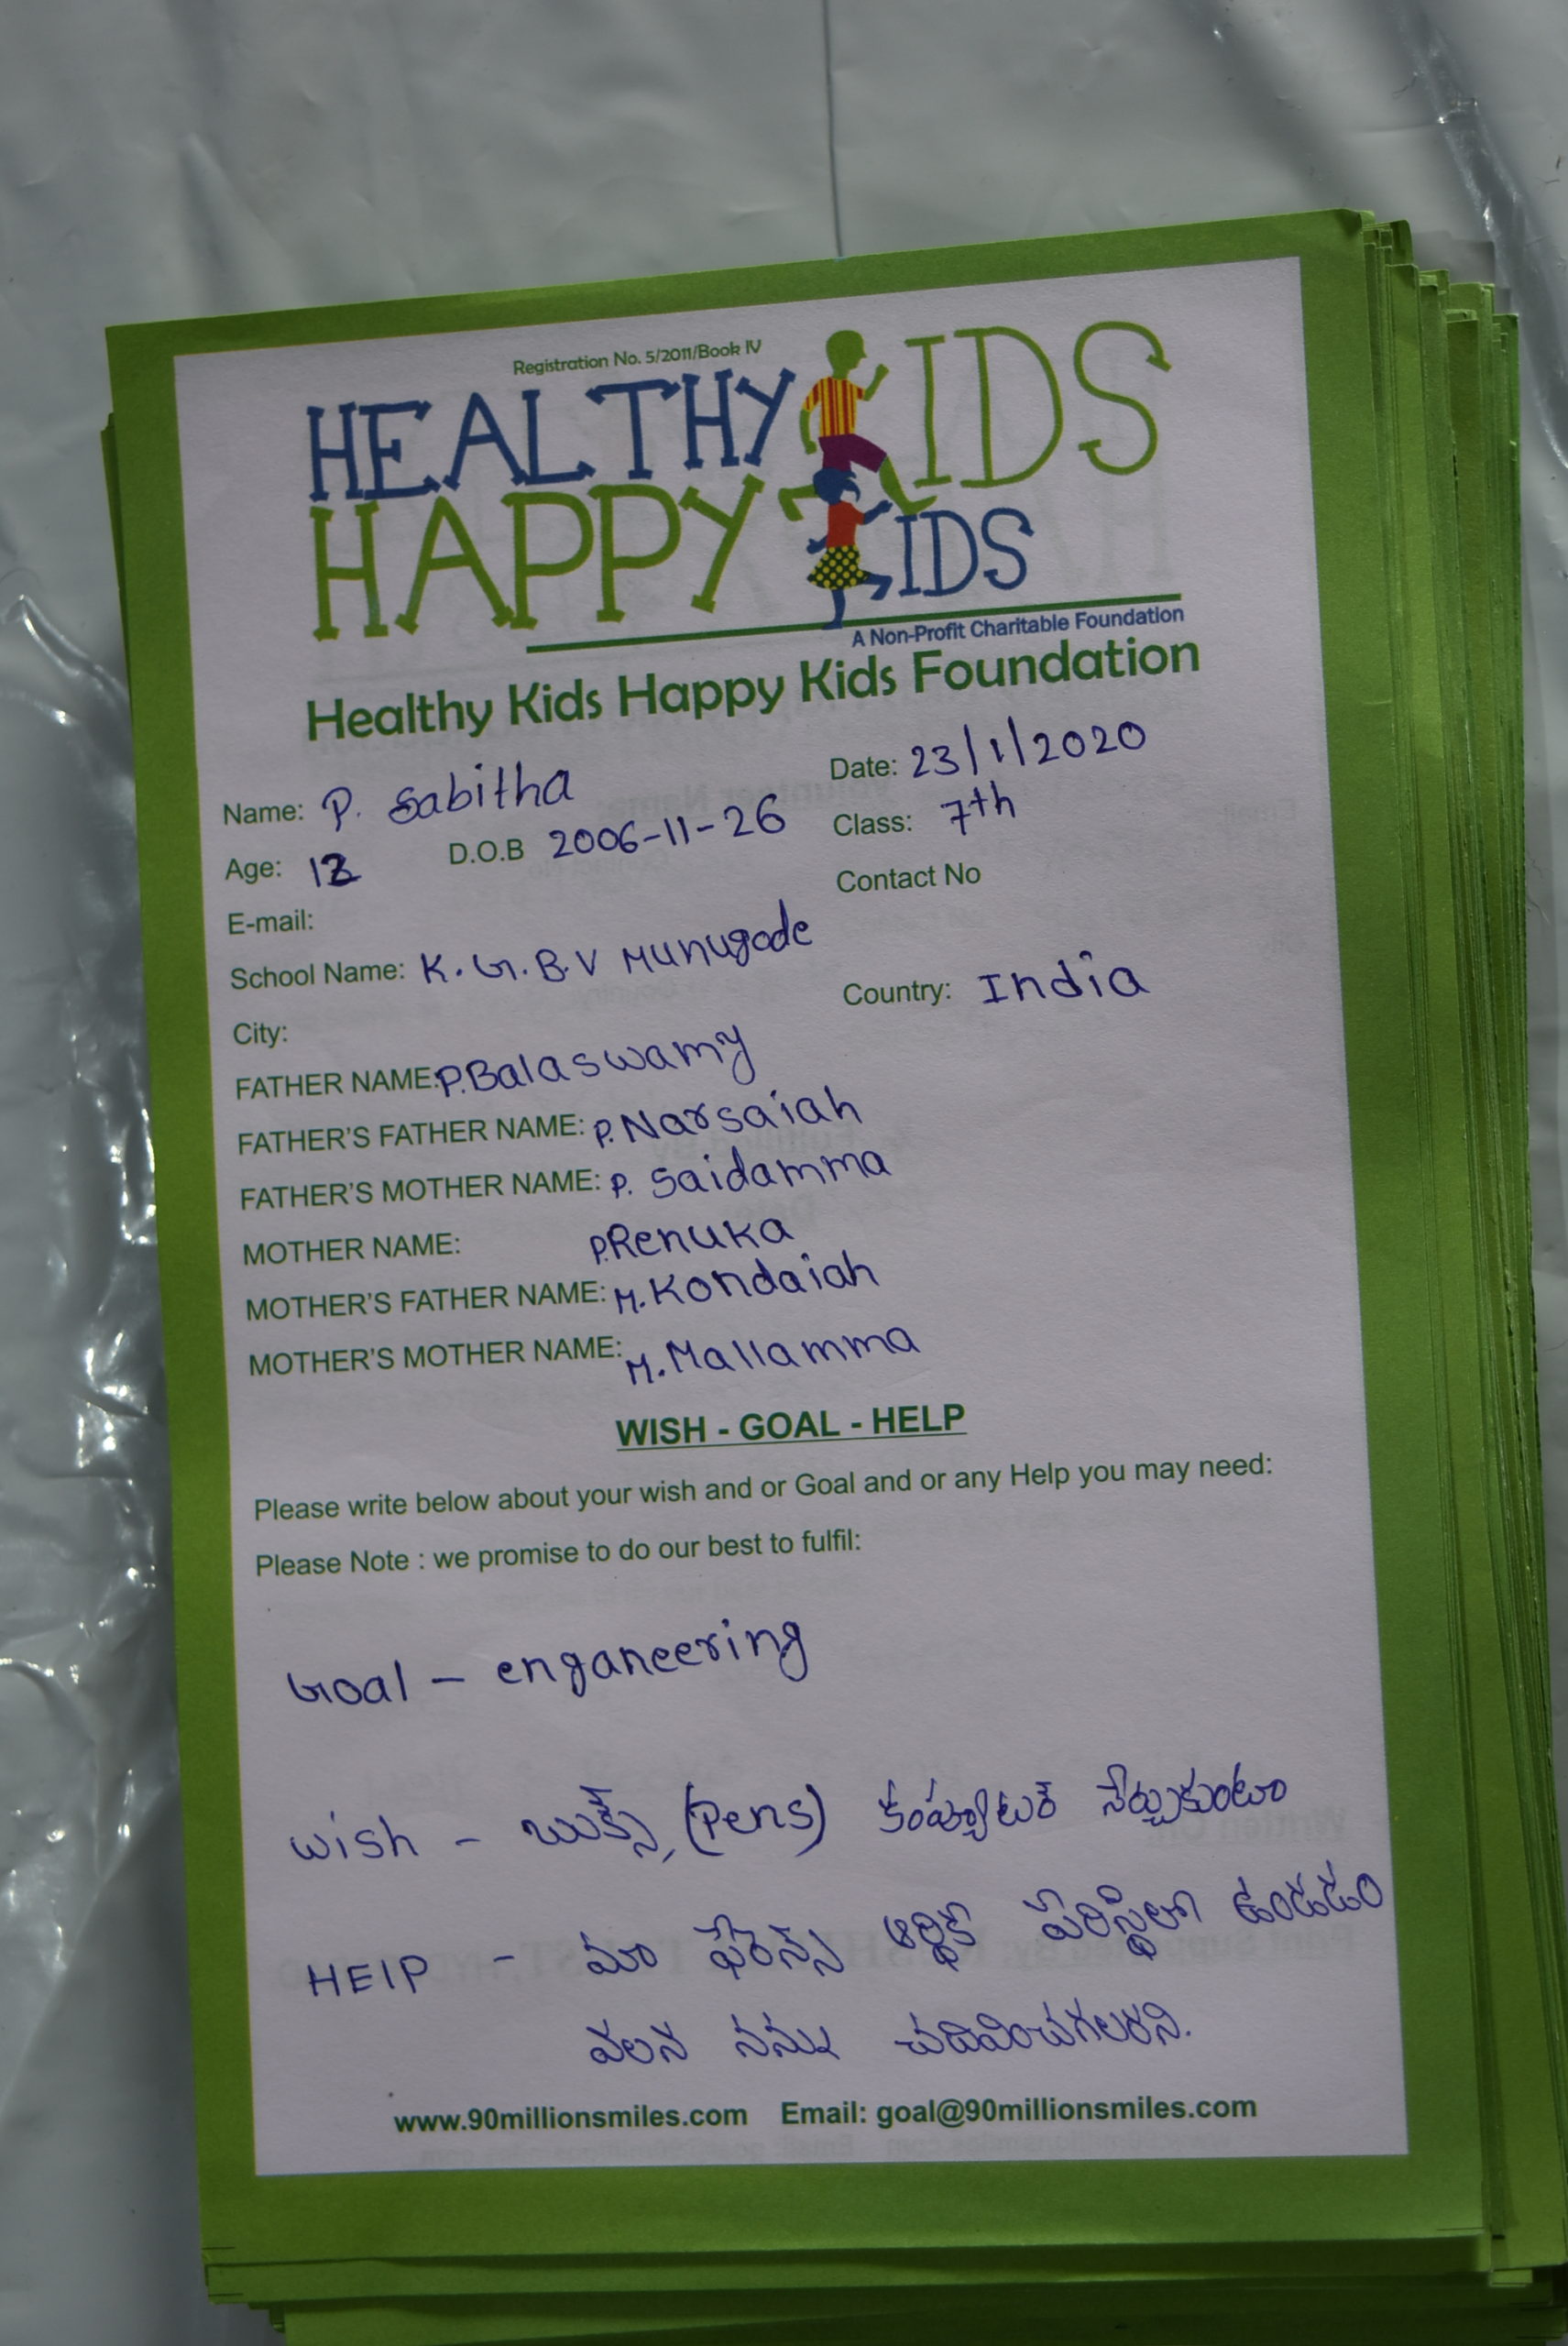 Registration No. 5/2011/Book IV
HEALTHY KIDS
HAPPY KIDS
A Non-Profit Charitable Foundation
Healthy Kids Happy Kids Foundation
Name: P. Sabitha Date: 23/1/2020
Age: D.O.B 2006-11-26 Class: 7th
E-mail: Contact No
School Name: K.G.B.V Munugode
City: Country: India
FATHER NAME: P.Balaswamy
FATHER'S FATHER NAME: P.Narsaiah
FATHER'S MOTHER NAME: P. Saidamma
MOTHER NAME: P.Renuka
MOTHER'S FATHER NAME: M.Kondaiah
MOTHER'S MOTHER NAME: M.Mallamma
WISH - GOAL - HELP
Please write below about your wish and or Goal and or any Help you may need:
Please Note : we promise to do our best to fulfil:
Goal - enganeering
wish - బుక్స్, (Pens) కంప్యూటర్ నేర్చుకుంటా
HElP - మా పేరెన్స్ ఆర్థిక పరిస్థితిలో ఉండడం
వలన నన్ను చదివించగలరని.
www.90millionsmiles.com Email: goal@90millionsmiles.com